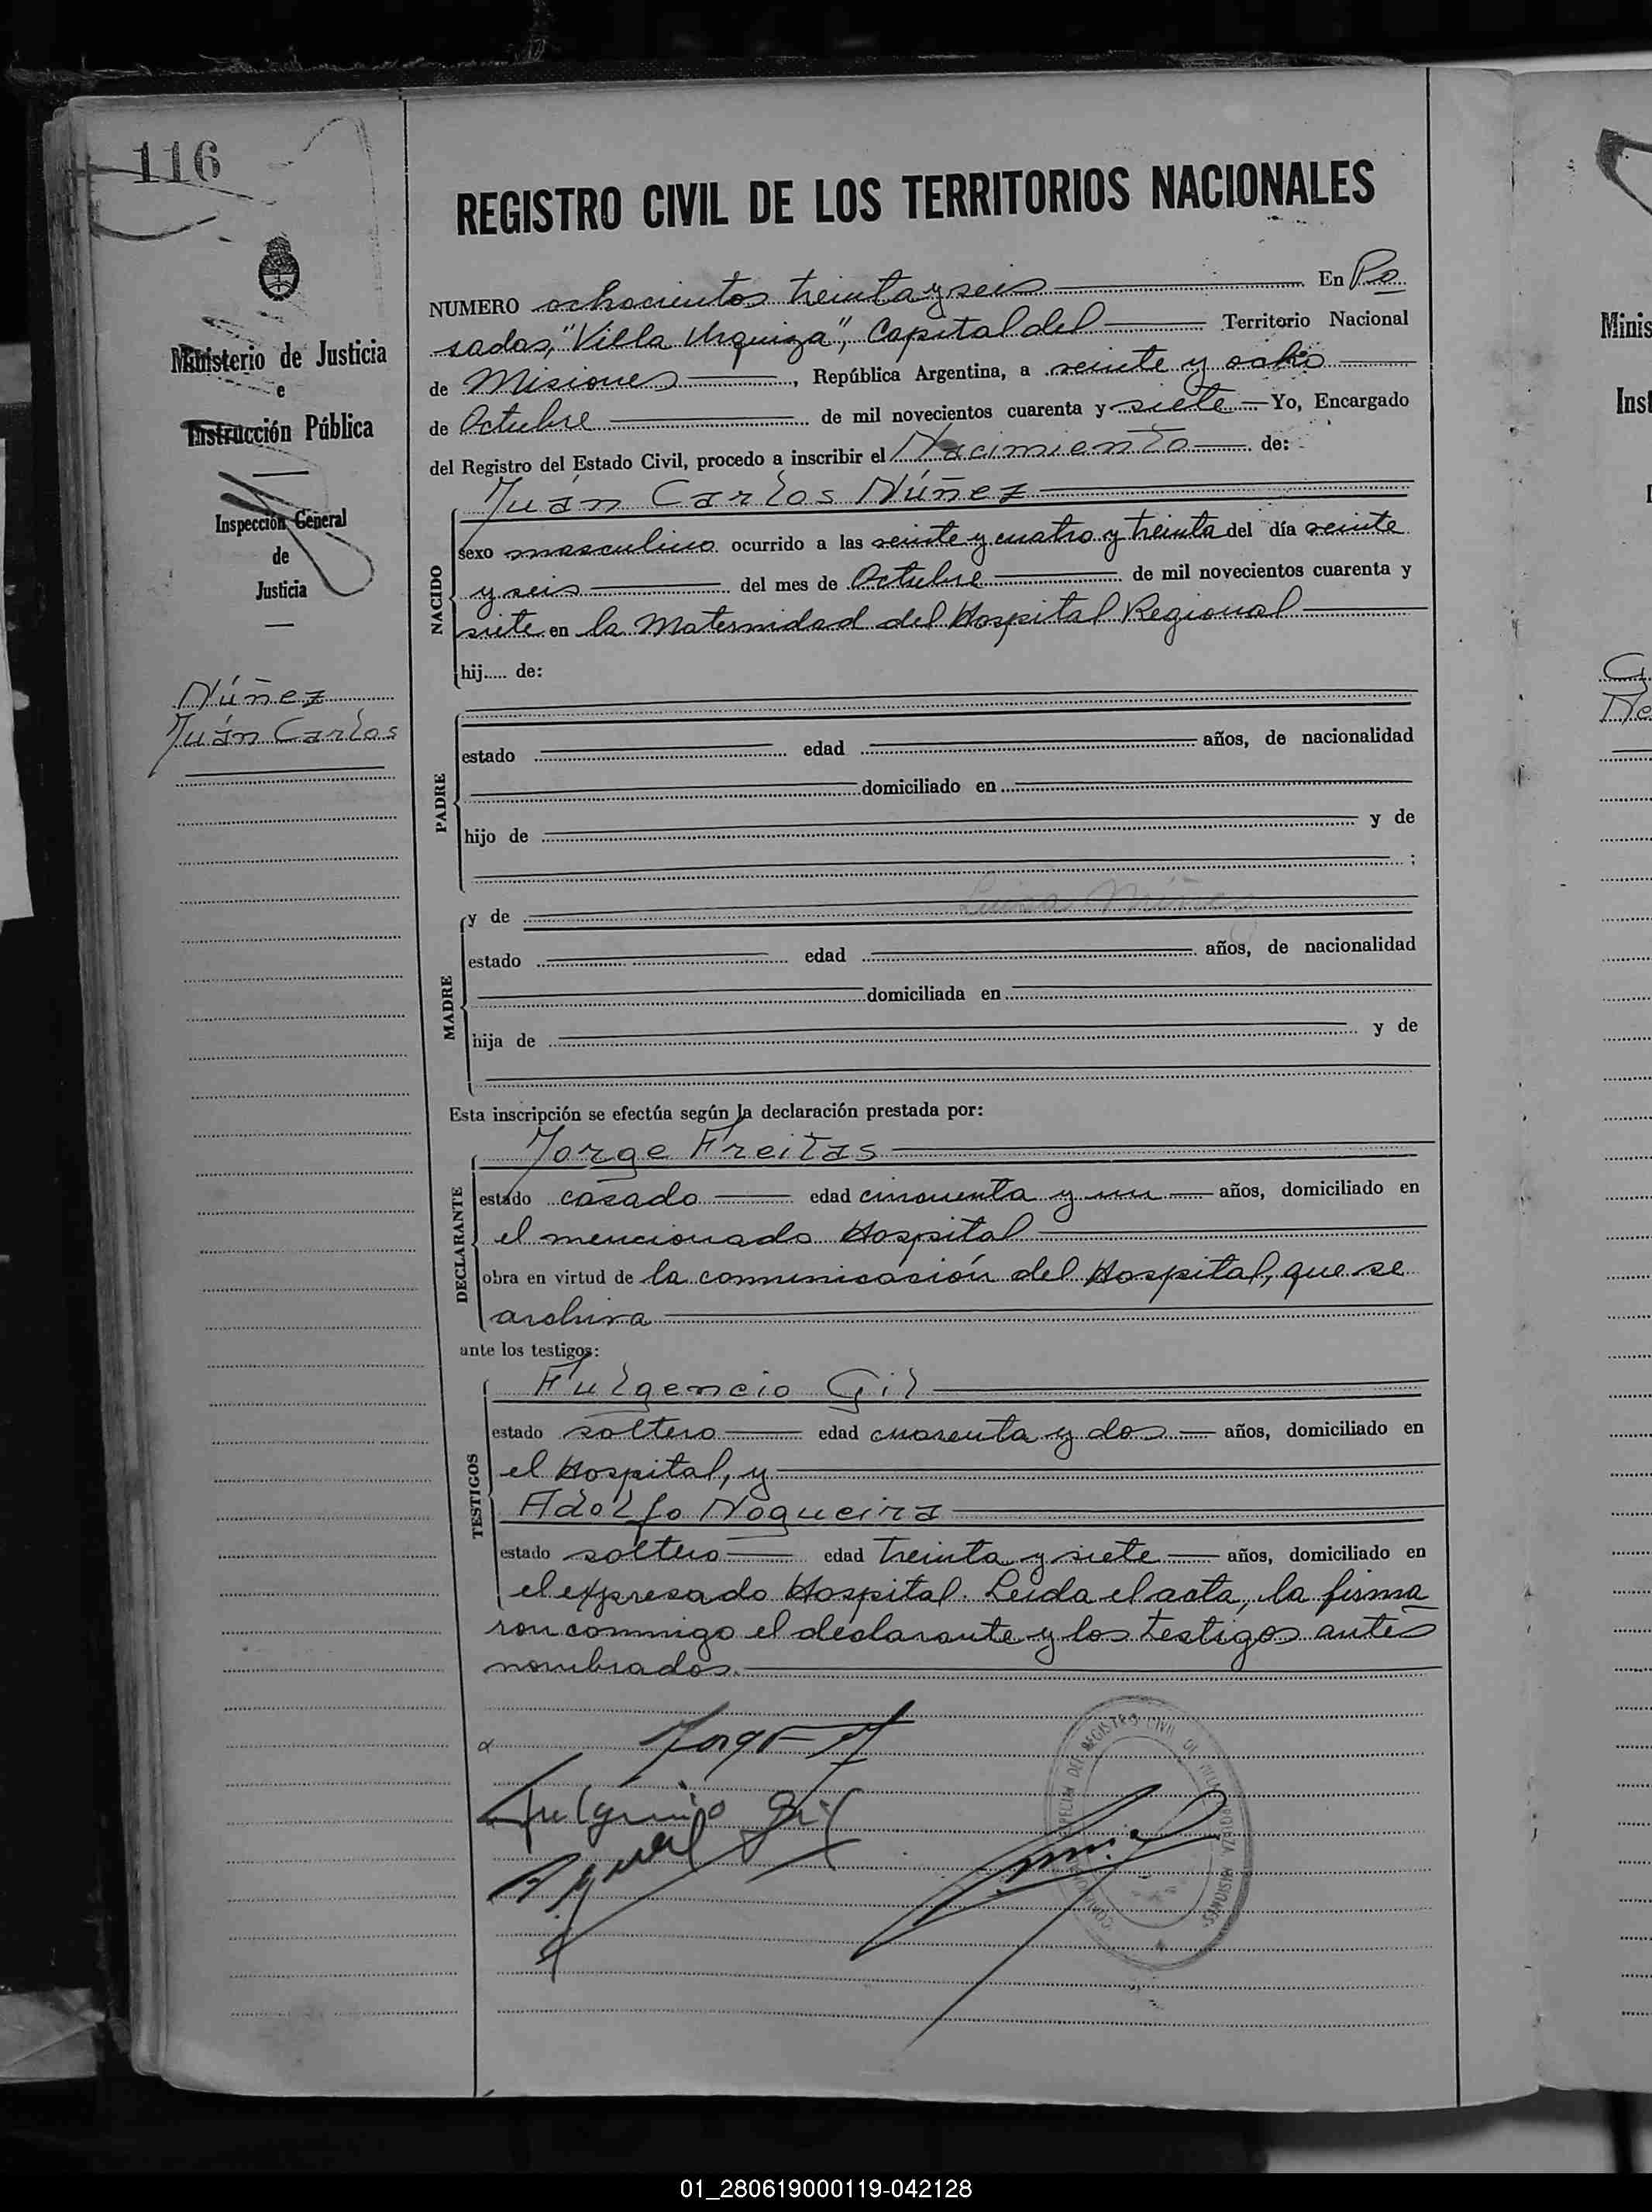 116
REGISTRO CIVIL DE LOS TERRITORIOS NACIONALES
Ministerio de Justicia
e
Instrucción Pública
Inspección General
de
Justicia
Núñez
Juán Carlos
NUMERO ochocientos treinta y seis En Po
sadas, "Villa Urquiza", Capital del Territorio Nacional
de Misiones, República Argentina, a veinte y ocho
de Octubre de mil novecientos cuarenta y siete Yo, Encargado
del Registro del Estado Civil, procedo a inscribir el Nacimiento de:
NACIDO
Juán Carlos Núñez
sexo masculino ocurrido a las veinte y cuatro y treinta del día veinte
y seis del mes de Octubre de mil novecientos cuarenta y
siete en la Maternidad del Hospital Regional
hij..... de:
PADRE
estado edad años, de nacionalidad
domiciliado en
hijo de y de
;
MADRE
y de Luisa Núñez
estado edad años, de nacionalidad
domiciliada en
hija de y de
Esta inscripción se efectúa según la declaración prestada por:
DECLARANTE
Jorge Freitas
estado casado edad cincuenta y un años, domiciliado en
el mencionado Hospital
obra en virtud de la comunicación del Hospital, que se
archiva
ante los testigos:
TESTIGOS
Fulgencio Gil
estado soltero edad cuarenta y dos años, domiciliado en
el Hospital, y
Adolfo Nogueira
estado soltero edad treinta y siete años, domiciliado en
el expresado Hospital. Leida el acta, la firma
ron conmigo el declarante y los testigos antes
nombrados.
Fulgencio Gil
REGISTRO CIVIL
MISIONES
Minis
Inst
01_280619000119-042128